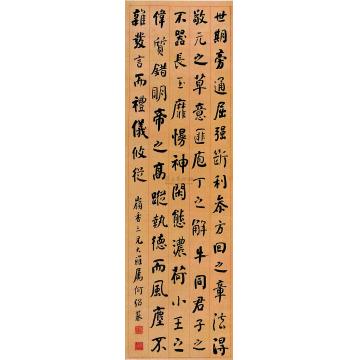 世期旁通屈强斷利参方回之章法得
敬元之草意匪庖丁之解牛同君子之
不器長玉靡慢神閑態濃荷小王之
偉質錯明帝之高蹤執德而風塵不
雜發言而禮儀攸從
三兄大雅属何绍基